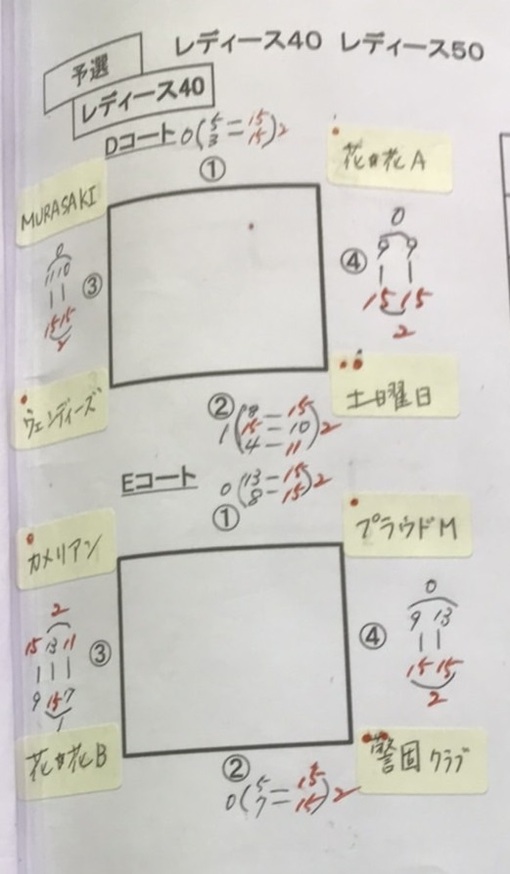 レディース40 レディース50
予選
レディース40
Dコート 0(5=15 3 15)2
①
花♡花A
MURASAKI
0
9 9
④
15 15
2
0
11 10
③
15 15
2
ウェンディーズ
土曜日
②
1(8-15 15-10 4-11)2
Eコート
0(13-15 8-15)2
①
プラウドM
カメリアン
2
15 13 11
③
9 15 7
1
0
9 13
④
15 15
2
花♡花B
警固クラブ
②
0(5=15 7 15)2